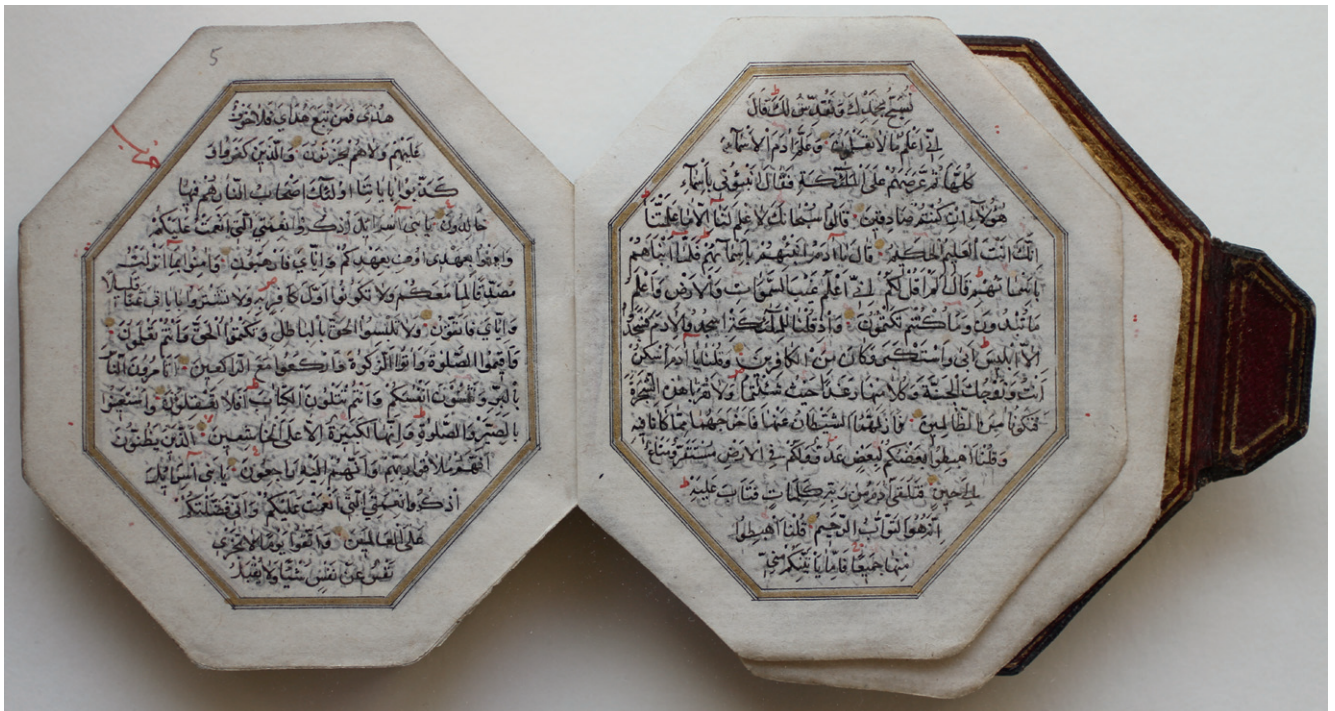 نُسَبِّحُ بِحَمْدِكَ وَنُقَدِّسُ لَكَ قَالَ
اِنِّي اَعْلَمُ مَا لَا تَعْلَمُونَ وَعَلَّمَ اٰدَمَ الْاَسْمَاءَ
كُلَّهَا ثُمَّ عَرَضَهُمْ عَلَى الْمَلٰئِكَةِ فَقَالَ اَنْبِؤُنِي بِاَسْمَاءِ
هٰؤُلَاءِ اِنْ كُنْتُمْ صَادِقِينَ قَالُوا سُبْحَانَكَ لَا عِلْمَ لَنَا اِلَّا مَا عَلَّمْتَنَا
اِنَّكَ اَنْتَ الْعَلِيمُ الْحَكِيمُ قَالَ يَا اٰدَمُ اَنْبِئْهُمْ بِاَسْمَائِهِمْ فَلَمَّا اَنْبَاَهُمْ
بِاَسْمَائِهِمْ قَالَ اَلَمْ اَقُلْ لَكُمْ اِنِّي اَعْلَمُ غَيْبَ السَّمٰوَاتِ وَالْاَرْضِ وَاَعْلَمُ
مَا تُبْدُونَ وَمَا كُنْتُمْ تَكْتُمُونَ وَاِذْ قُلْنَا لِلْمَلٰئِكَةِ اسْجُدُوا لِاٰدَمَ فَسَجَدُوا
اِلَّا اِبْلِيسَ اَبٰى وَاسْتَكْبَرَ وَكَانَ مِنَ الْكَافِرِينَ وَقُلْنَا يَا اٰدَمُ اسْكُنْ
اَنْتَ وَزَوْجُكَ الْجَنَّةَ وَكُلَا مِنْهَا رَغَدًا حَيْثُ شِئْتُمَا وَلَا تَقْرَبَا هٰذِهِ الشَّجَرَةَ
فَتَكُونَا مِنَ الظَّالِمِينَ فَاَزَلَّهُمَا الشَّيْطَانُ عَنْهَا فَاَخْرَجَهُمَا مِمَّا كَانَا فِيهِ
وَقُلْنَا اهْبِطُوا بَعْضُكُمْ لِبَعْضٍ عَدُوٌّ وَلَكُمْ فِي الْاَرْضِ مُسْتَقَرٌّ وَمَتَاعٌ
اِلٰى حِينٍ فَتَلَقّٰى اٰدَمُ مِنْ رَبِّهِ كَلِمَاتٍ فَتَابَ عَلَيْهِ
اِنَّهُ هُوَ التَّوَّابُ الرَّحِيمُ قُلْنَا اهْبِطُوا
مِنْهَا جَمِيعًا فَاِمَّا يَاْتِيَنَّكُمْ مِنِّي
5
هُدًى فَمَنْ تَبِعَ هُدَايَ فَلَا خَوْفٌ
عَلَيْهِمْ وَلَا هُمْ يَحْزَنُونَ وَالَّذِينَ كَفَرُوا وَ
كَذَّبُوا بِاٰيَاتِنَا اُولٰئِكَ اَصْحَابُ النَّارِ هُمْ فِيهَا
خَالِدُونَ يَا بَنِي اِسْرَائِلَ اذْكُرُوا نِعْمَتِيَ الَّتِي اَنْعَمْتُ عَلَيْكُمْ
وَاَوْفُوا بِعَهْدِي اُوفِ بِعَهْدِكُمْ وَاِيَّايَ فَارْهَبُونِ وَاٰمِنُوا بِمَا اَنْزَلْتُ
مُصَدِّقًا لِمَا مَعَكُمْ وَلَا تَكُونُوا اَوَّلَ كَافِرٍ بِهِ وَلَا تَشْتَرُوا بِاٰيَاتِي ثَمَنًا قَلِيلًا
وَاِيَّايَ فَاتَّقُونِ وَلَا تَلْبِسُوا الْحَقَّ بِالْبَاطِلِ وَتَكْتُمُوا الْحَقَّ وَاَنْتُمْ تَعْلَمُونَ
وَاَقِيمُوا الصَّلٰوةَ وَاٰتُوا الزَّكٰوةَ وَارْكَعُوا مَعَ الرَّاكِعِينَ اَتَاْمُرُونَ النَّاسَ
بِالْبِرِّ وَتَنْسَوْنَ اَنْفُسَكُمْ وَاَنْتُمْ تَتْلُونَ الْكِتَابَ اَفَلَا تَعْقِلُونَ وَاسْتَعِينُوا
بِالصَّبْرِ وَالصَّلٰوةِ وَاِنَّهَا لَكَبِيرَةٌ اِلَّا عَلَى الْخَاشِعِينَ الَّذِينَ يَظُنُّونَ
اَنَّهُمْ مُلَاقُوا رَبِّهِمْ وَاَنَّهُمْ اِلَيْهِ رَاجِعُونَ يَا بَنِي اِسْرَائِلَ
اذْكُرُوا نِعْمَتِيَ الَّتِي اَنْعَمْتُ عَلَيْكُمْ وَاَنِّي فَضَّلْتُكُمْ
عَلَى الْعَالَمِينَ وَاتَّقُوا يَوْمًا لَا تَجْزِي
نَفْسٌ عَنْ نَفْسٍ شَيْئًا وَلَا يُقْبَلُ